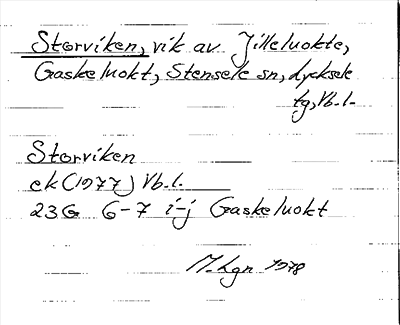 Storviken, vik av Jilleluokte,
Gaskeluokt, Stensele sn, Lycksele
tg, Vb. l.
Storviken
ek (1977) Vb. l.
23G 6-7 i-j Gaskeluokt
M. Lgn 1978